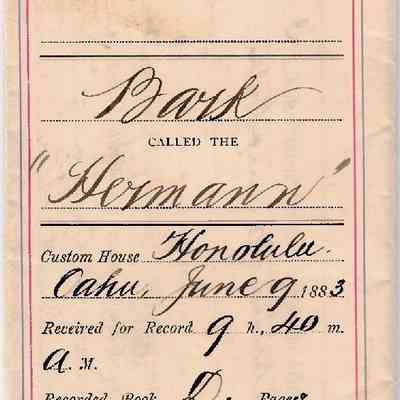 Bark
CALLED THE
"Hermann"
Custom House Honolulu.
Oahu, June 9 1883
Received for Record 9 h., 40 m.
A. M.
Recorded Book D. Page